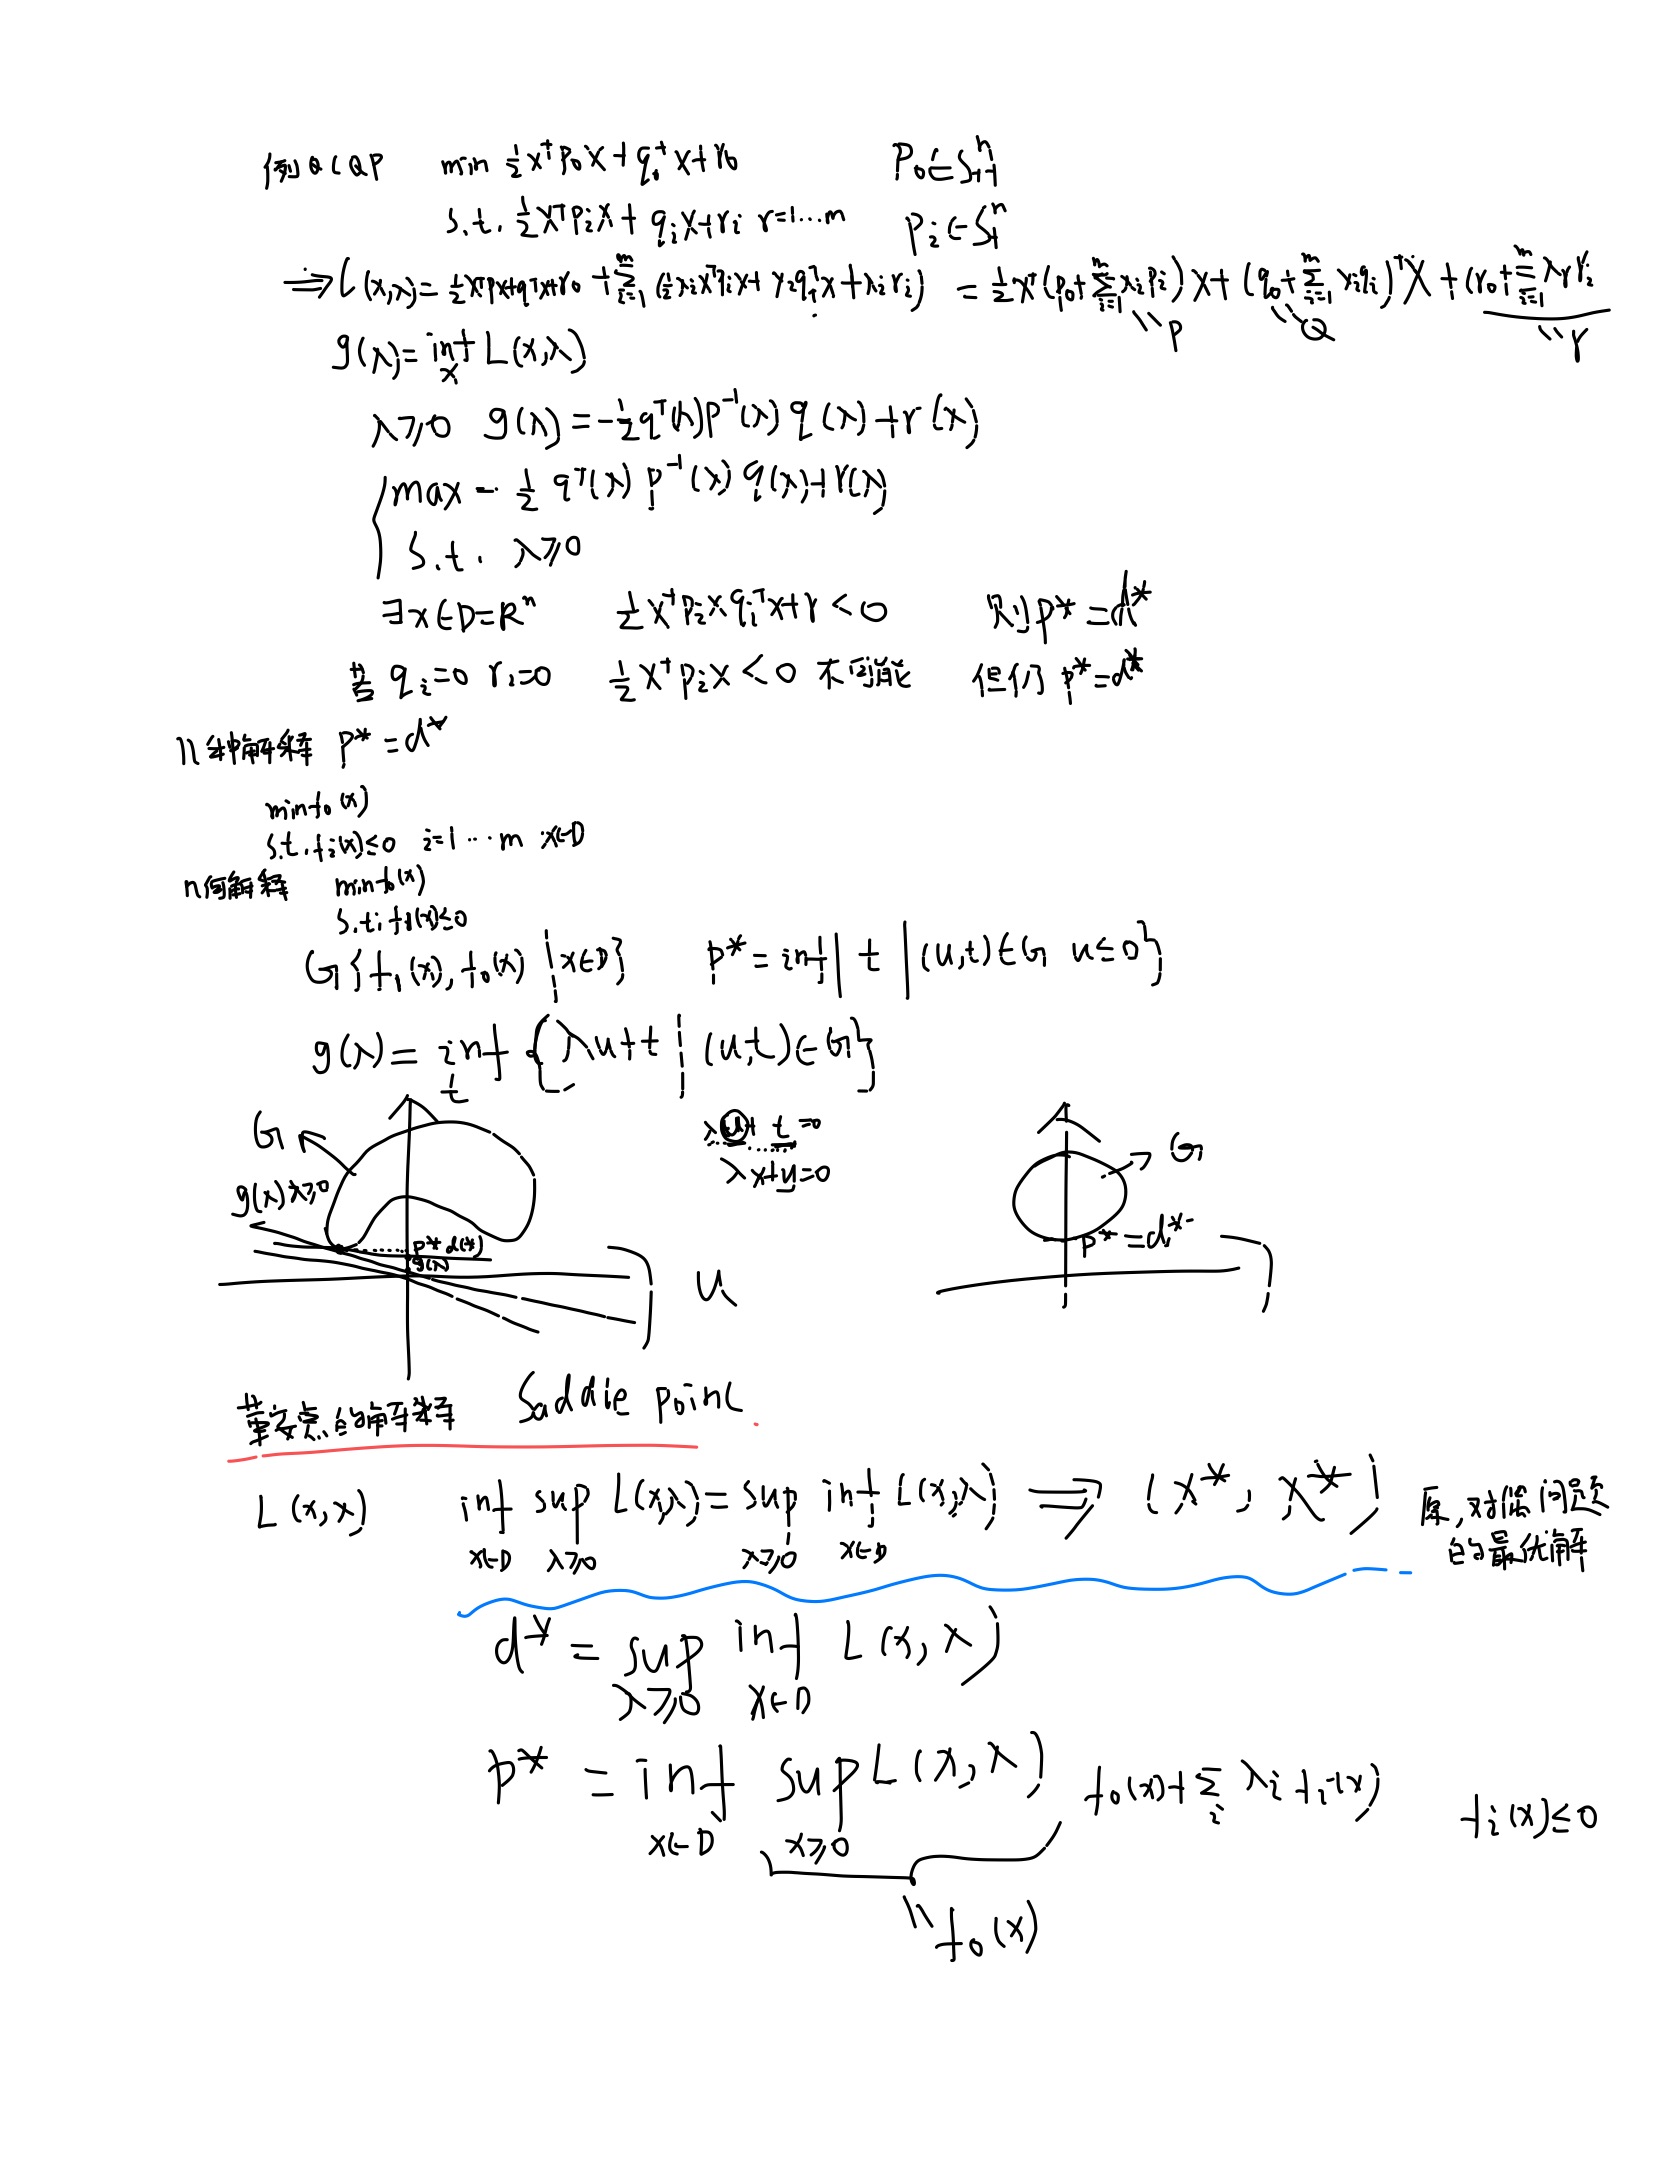 例 QCQP min ½xᵀP₀x+q₀ᵀx+r₀ P₀∈Sⁿ₊₊
s.t. ½xᵀPᵢx+qᵢx+rᵢ r=1⋯m Pᵢ∈Sⁿ₊
⇒L(x,λ)=½xᵀPx+qᵀx+r₀+∑ᵢ₌₁ᵐ(½λᵢxᵀPᵢx+γ₂qᵢᵀx+λᵢrᵢ) =½xᵀ(P₀+∑ᵢ₌₁ᵐxᵢPᵢ)x+(q₀+∑ᵢ₌₁ᵐxᵢqᵢ)ᵀX+(r₀+∑ᵢ₌₁ᵐλᵣrᵢ
"P "Q "r
g(λ)=inf L(x,λ)
x
λ≥0 g(λ)=-½qᵀ(λ)P⁻¹(λ)q(λ)+r(x)
max -½ qᵀ(λ) P⁻¹(λ) q(λ)+r(λ)
s.t. λ≥0
∃x∈D=Rⁿ ½xᵀPᵢx qᵢᵀx+r<0 则P*=d*
若 qᵢ=0 rᵢ=0 ½xᵀPᵢx<0 不可能 但仍 P*=d*
几种解释 P*=d*
min f₀(x)
s.t. fᵢ(x)≤0 i=1⋯m x∈D
几何解释 min f₀(x)
s.t. f₁(x)≤0
G{f₁(x),f₀(x) | x∈D} P*=inf| t |(u,t)∈G u≤0}
g(λ)=inf {λu+t | (u,t)∈G}
t
G
λu+t=0
λx+y=0
g(λ) λ≥0
P* d(*)
g(λ)
u
G
P*=d*
鞍点的解释 Saddle point.
L(x,x) inf sup L(x,λ)=sup inf L(x,λ) ⇒ (x*, λ*) 原,对偶问题
x∈D λ≥0 λ≥0 x∈D 的最优解
d*=sup inf L(x,λ)
λ≥0 x∈D
P*=inf sup L(x,λ) f₀(x)+∑ᵢ λᵢfᵢ(x) fᵢ(x)≤0
x∈D x≥0
"f₀(x)